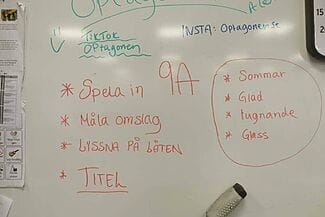 TikTok
Optagonen
INSTA: Optagonen.se
9A
* Spela in
* Måla omslag
* LYSSNA PÅ LÅTEN
* TITEL
* Sommar
* Glad
* Lugnande
* Glass